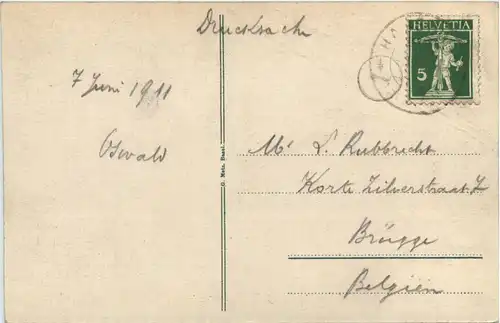 Drucksache
HELVETIA
5
7 Juni 1911
Oswald
G. Metz, Basel.
Mr L. Rubbrecht
Korte Zilverstraat 7
Brügge
Belgien